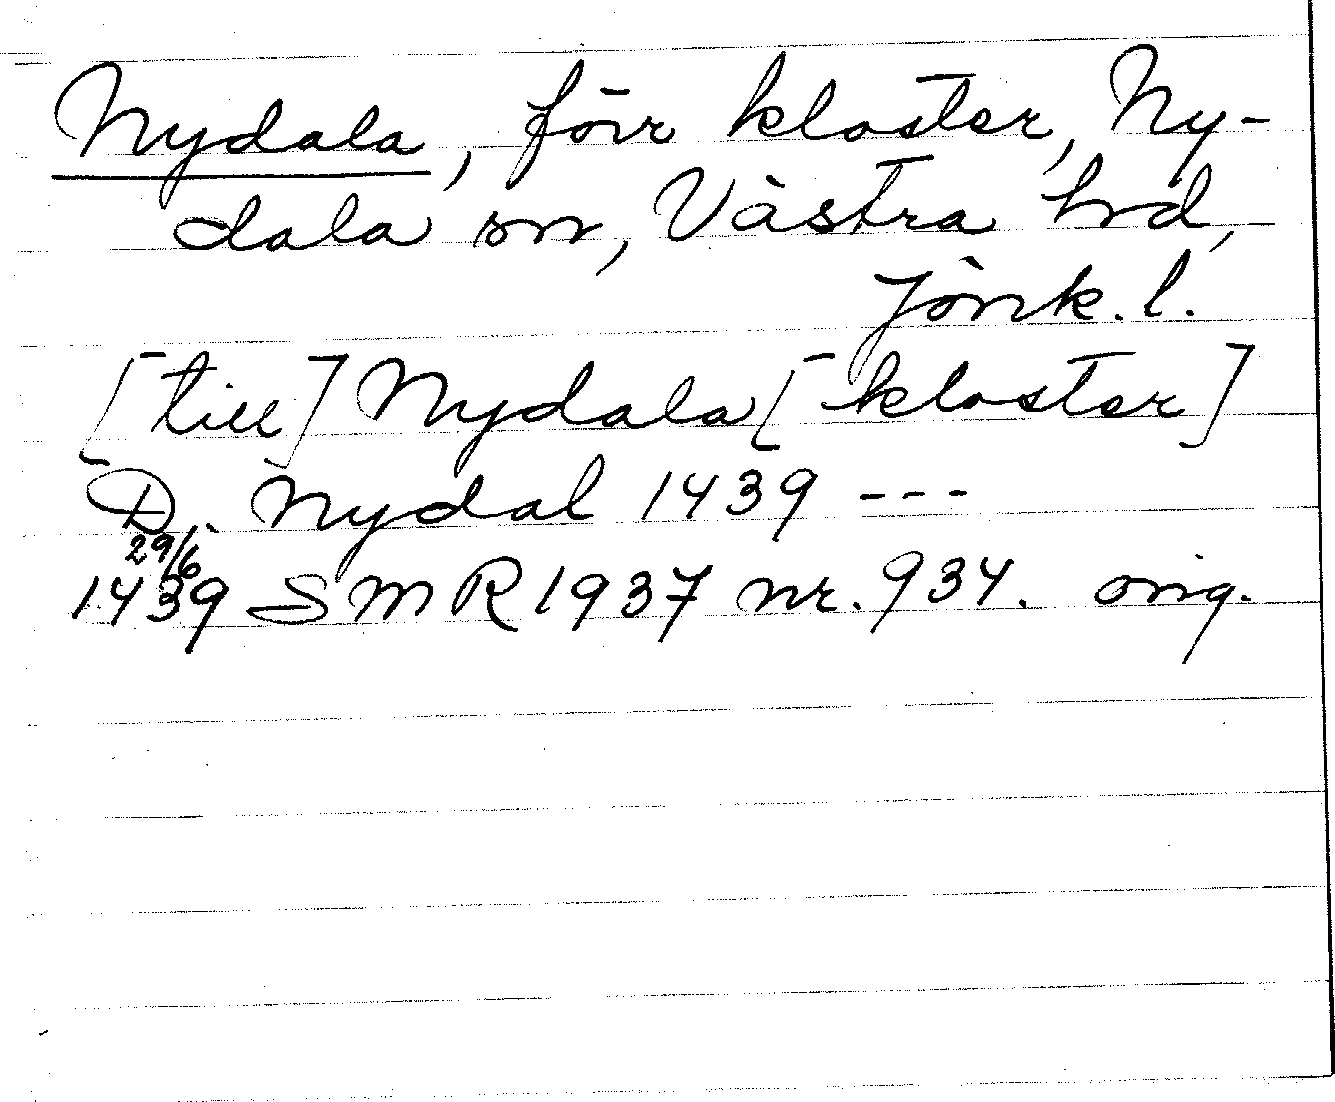 Nydala, förr kloster, Ny-
dala sn, Västra hrd,
Jönk. l.
[till] Nydala [kloster]
D. Nydal 1439 ---
29/6
1439 SMR 1937 nr. 934. orig.